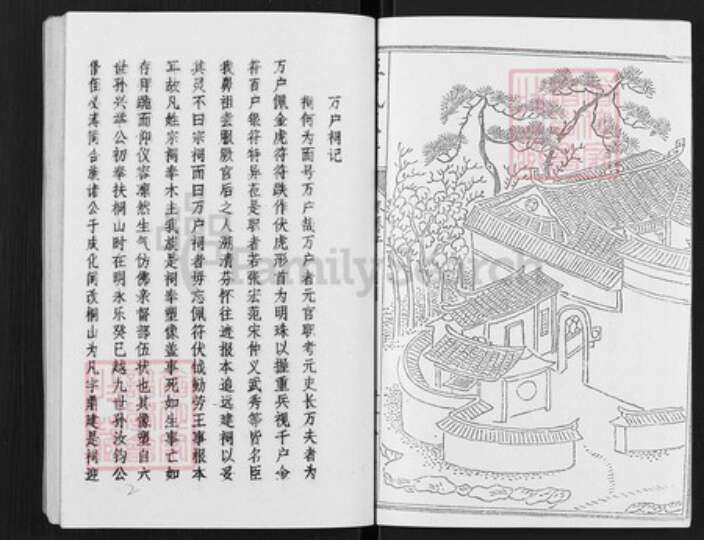 万户祠记
祠何为而号万户哉万户者元官职考元史长万夫者为
万户佩金虎符符趺作伏虎形首为明珠以握重兵视千户金
符百户银符特异在是职者若张宏范宋仲义武秀等皆名臣
我鼻祖云 厥官后之人溯清芬怀往迹报本追远建祠以妥
其灵不曰宗祠而曰万户祠者毋忘佩符伏钺勤劳王事根本
耳故凡姓宗祠奉木主我族是祠奉塑像盖事死如生事亡如
存拜跪而仰仪容凛然生气仿佛亲督部伍状也其像塑自六
世孙兴 公初奉扶桐山时在明永乐癸巳越九世孙汝钧公
偕 同 族诸公于成化间改桐山为 肃建是祠迎
2
FamilySearch